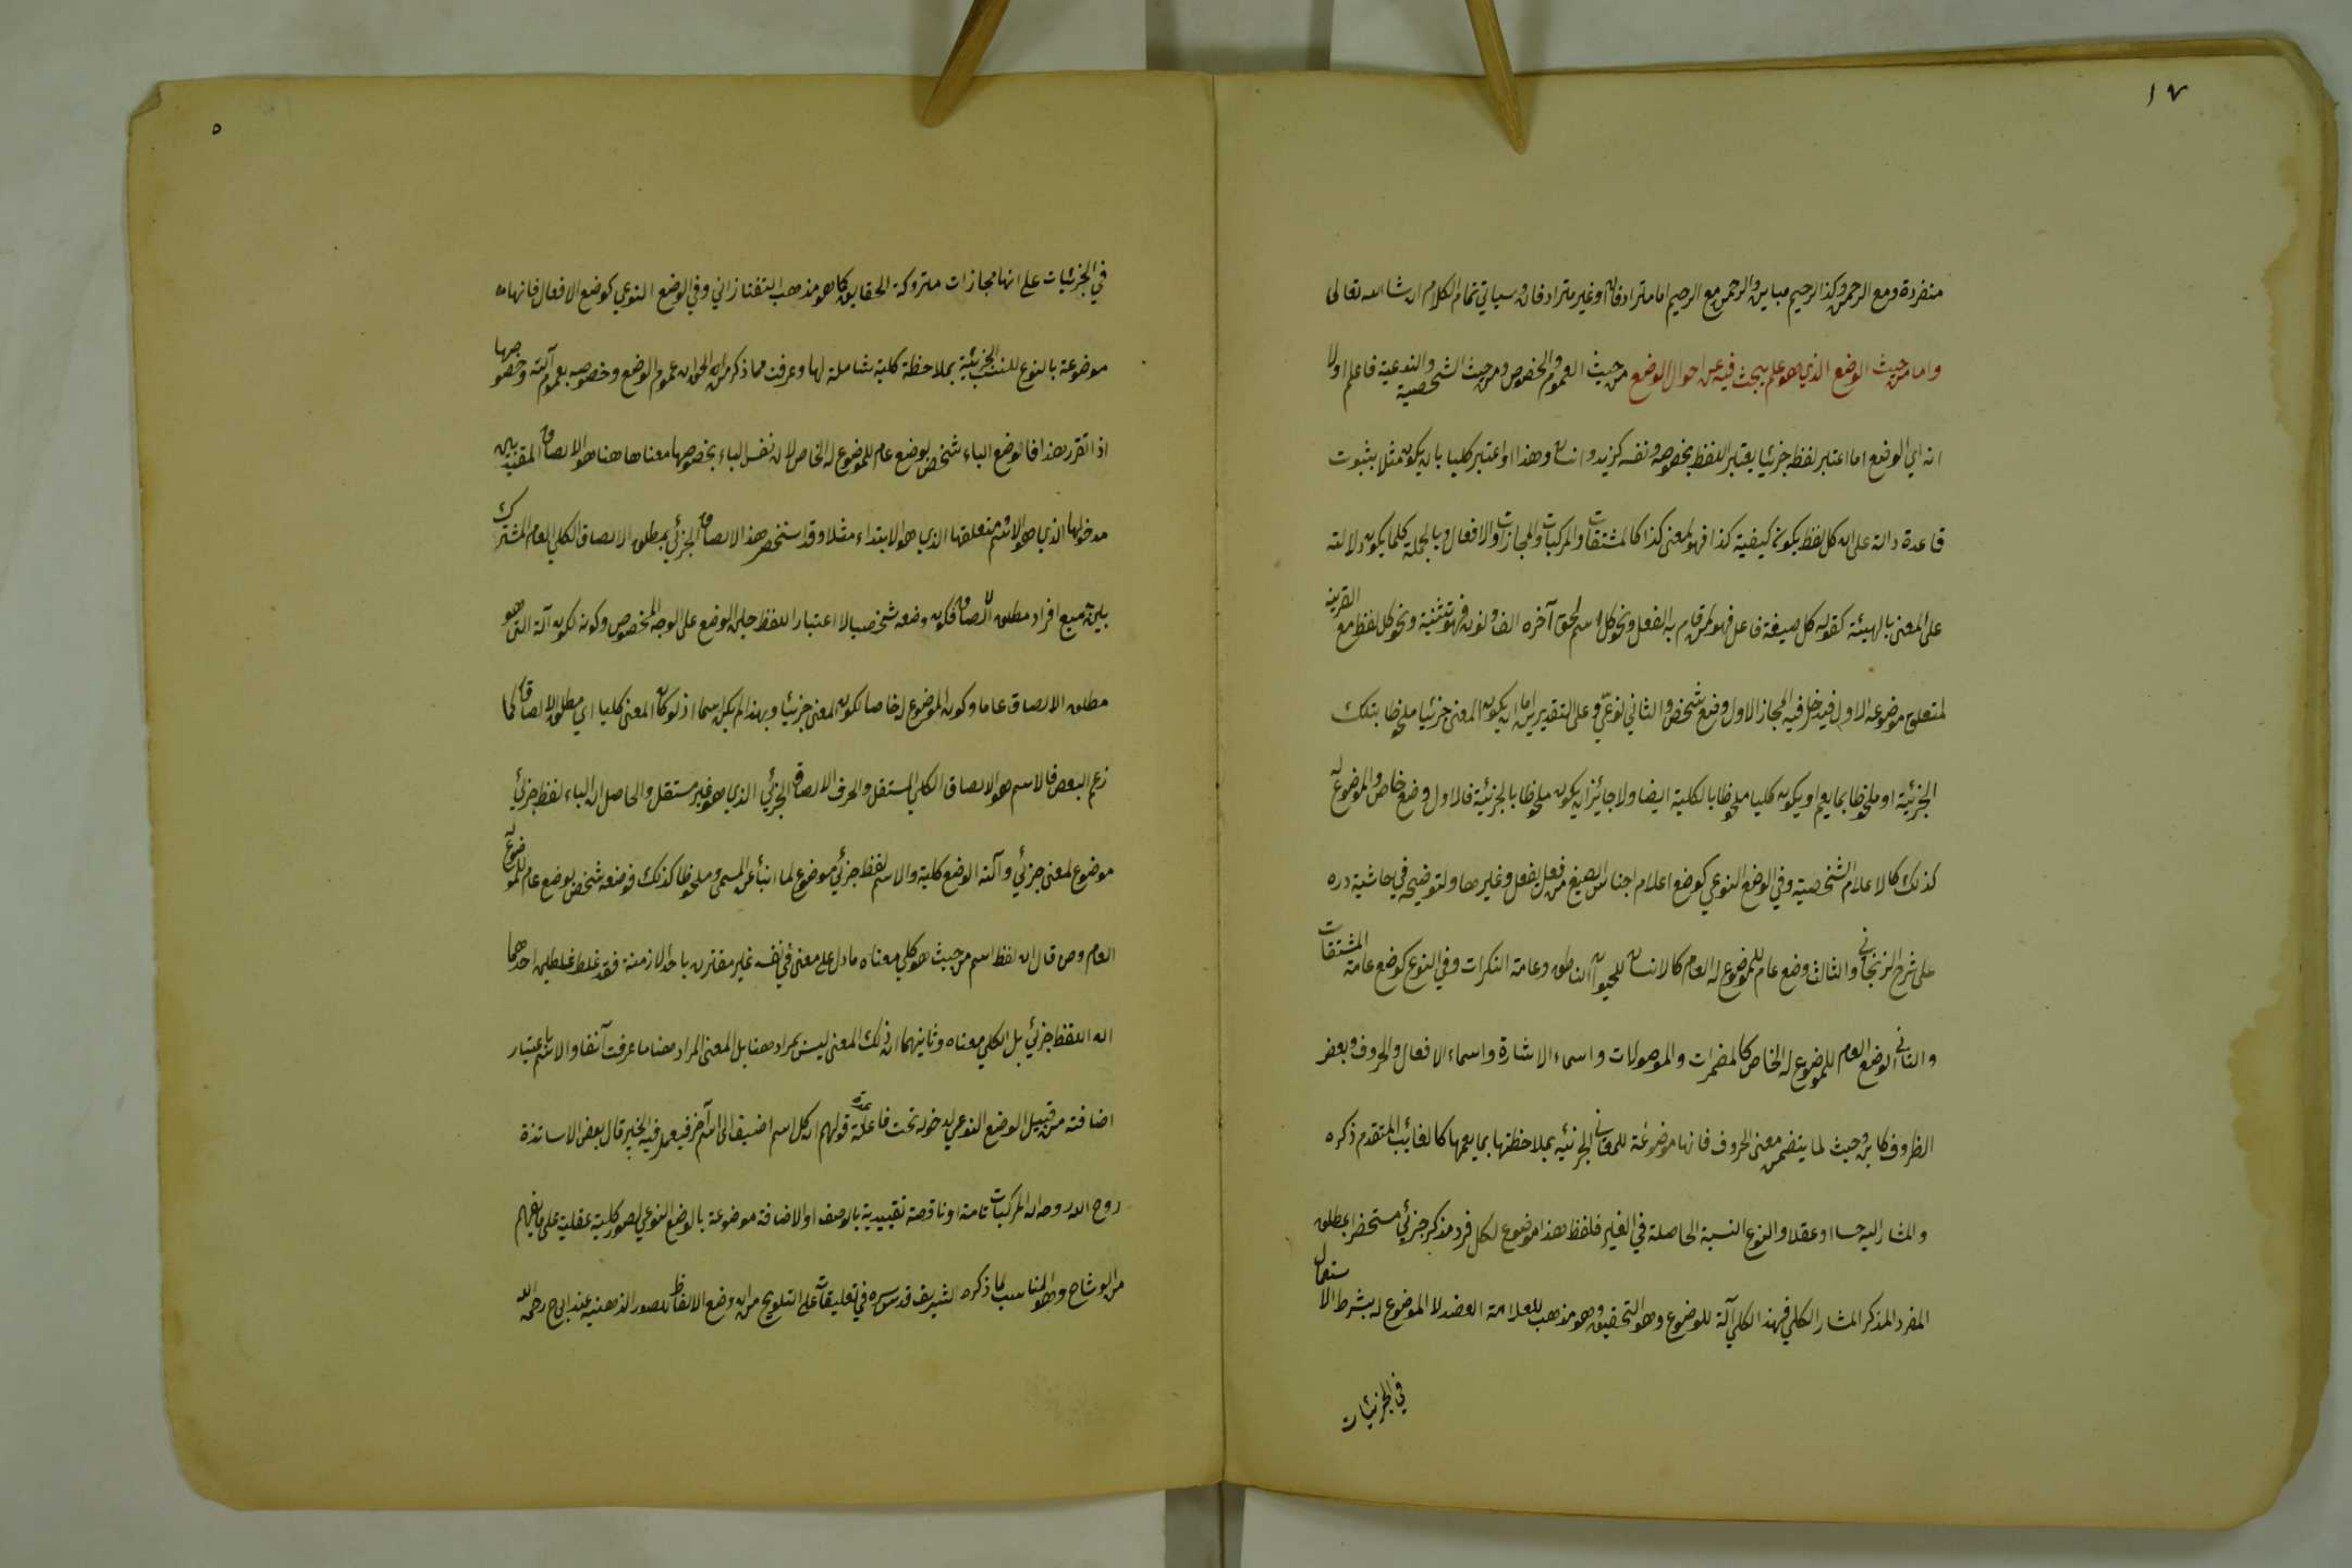 ١٧
منفردة ومع الرحمن وكذا الرحيم مباين والرحمن مع الرحيم اما مترادفان او غير مترادفان وسياتي تمام الكلام ان شاء الله تعالى
واما من حيث الوضع الذي هو علم يبحث فيه عن احوال الوضع من حيث العموم والخصوص ومن حيث الشخصية والنوعية فاعلم اولا
انه اي الوضع اما اعتبر لفظه جزئيا يعتبر اللفظ بخصوصه ونفسه كزيد وانسان وهذا او اعتبر كليا بان يكون مثلا بثبوت
قاعدة دالة على ان كل لفظ يكون بكيفية كذا فهو لمعنى كذا كالمشتقات والمركبات والمجازات والافعال وبالجملة كلما يكون دلالته
على المعنى بالهيئة كقوله كل صيغة فاعل فهو لمن قام به الفعل ونحو كل اسم لحق آخره الف ونون فهو تثنية ونحو كل لفظ مع القرينه
لمتعلق موضوعه الاول فيدخل فيه المجاز الاول وضع شخصي والثاني نوعي وعلى التقديرين اما ان يكون المعنى جزئيا ملحوظا بتلك
الجزئية او ملحوظا بما يعم او يكون كليا ملحوظا بالكلية ايضا ولا جائز ان يكون ملحوظا بالجزئية فالاول وضع خاص والموضوع له
كذلك كالاعلام الشخصية وفي الوضع النوعي كوضع اعلام اجناس الصيغ من فعل يفعل وغيرها ولتوضيحه في حاشية دره
على شرح الزنجاني والثالث وضع عام للموضوع له العام كالانسان للحيوان الناطق وعامة النكرات وفي النوع كوضع عامة المشتقات
والثاني الوضع العام للموضوع له الخاص كالمضمرات والموصولات واسماء الاشارة واسماء الافعال والحروف وبعض
الظروف كاين وحيث لما يتضمن معنى الحروف فانها موضوعة للمعاني الجزئيه بملاحظتها بما يعمها كالغائب المتقدم ذكره
والمشار اليه حسا او عقلا والنوع النسبة الحاصلة في الغير فلفظ هذا موضوع لكل فرد مذكر جزئي مستحضر بمطلق
المفرد المذكر المشار الكلي فهذا الكلي آلة للوضع وهو التحقيق وهو مذهب للعلامة العضد لا الموضوع له بشرط الاستعمال
في الجزئيات
٥
في الجزئيات على انها مجازات متروكة الحقايق كما هو مذهب التفتازاني وفي الوضع النوعي كوضع الافعال فانها
موضوعة بالنوع للنسب الجزئية بملاحظة كلية شاملة لها وعرفت مما ذكر من ان الحق ان عموم الوضع وخصوصه بعموم آلته وخصوصها
اذا تقرر هذا فالوضع الباء شخصي بوضع عام للموضوع له الخاص لان نفس الباء بخصوصها معناها هنا هو الالصاق المقيد بين
مدخولها الذي هو الاسم ومتعلقها الذي هو الابتداء مثلا وقد استحضر هذا الالصاق الجزئي بمطلق الالصاق الكلي العام المشترك
بين جميع افراد مطلق الالصاق فكون وضعه شخصيا لاعتبار اللفظ حين الوضع على الوجه المخصوص وكونه لكون آلته التي هو
مطلق الالصاق عاما وكون الموضوع له خاصا لكون المعنى جزئيا وبهذا لم يكن اسما اذ لو كان المعنى كليا اي مطلق الالصاق كما
زعم البعض فالاسم هو الالصاق الكلي المستقل والحرف الالصاق الجزئي الذي هو غير مستقل والحاصل ان الباء لفظ جزئي
موضوع لمعنى جزئي وآلته الوضع كلية والاسم لفظ جزئي موضوع لما انبأ عن المسمى وملحوظا كذلك فوضعه شخصي بوضع عام للموضوع له
العام ومن قال ان لفظ اسم من حيث هو كلي معناه ما دل على معنى في نفسه غير مقترن باحد الازمنة فقد غلط غلطين احدهما
ان اللفظ جزئي بل الكلي معناه وثانيهما ان ذلك المعنى ليس بمراد هنا بل المعنى المراد هنا ما عرفت آنفا والاسم باعتبار
اضافته من قبيل الوضع النوعي لدخوله تحت قاعدة قولهم ان كل اسم اضيف الى اسم آخر فيعمل فيه الجر قال بعض الاساتذة
روح الله روحه ان المركبات تامة او ناقصة تقييدية بالوصف او الاضافة موضوعة بالوضع النوعي لصور كلية عقلية على ما يفهم
من الوشاح وهو المناسب لما ذكره الشريف قدس سره في تعليقاته على التلويح من ان وضع الالفاظ للصور الذهنيه عند ابي ح رحمه الله